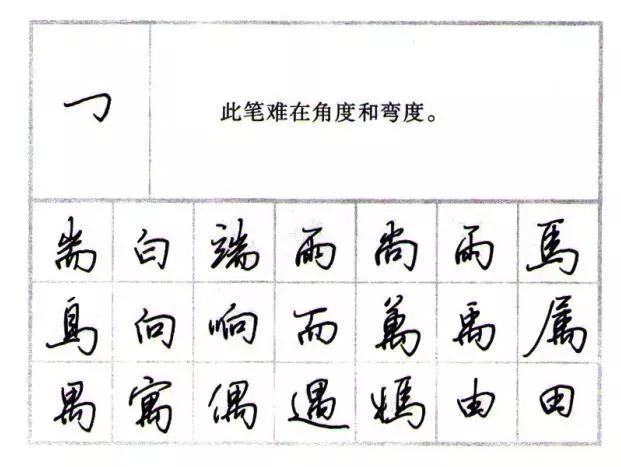 ㇆
此笔难在角度和弯度。
耑 白 端 雨 尚 雨 馬
鳥 向 响 而 萬 禹 属
禺 寓 偶 遇 媽 由 田